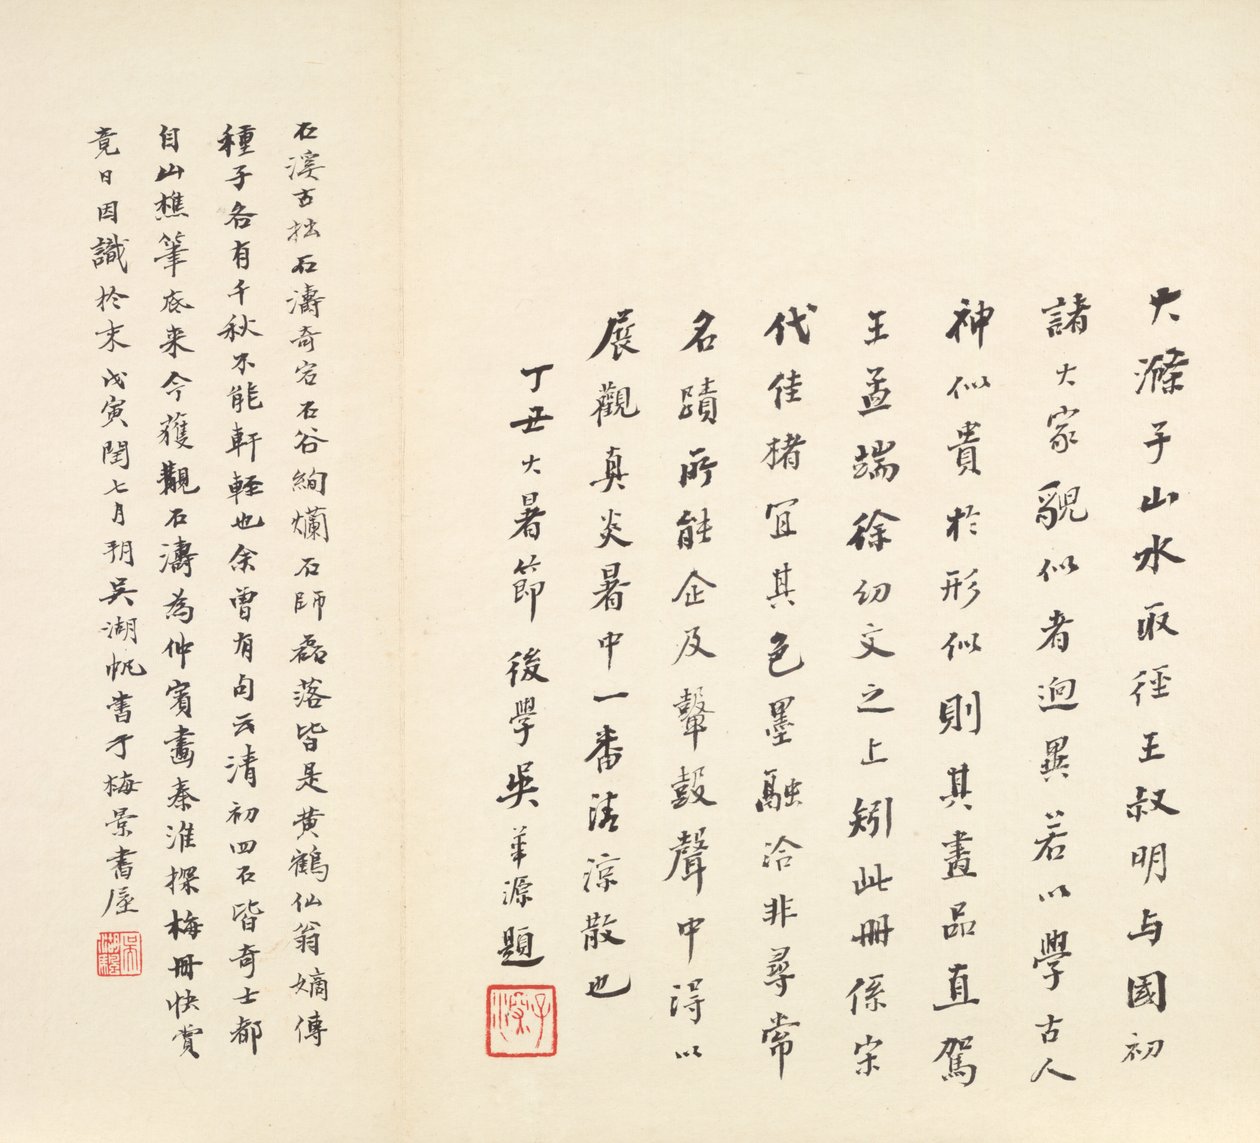 大滌子山水取徑王叔明与國初
諸大家貌似者迥異若以學古人
神似貴於形似則其畫品直駕
王孟端徐幼文之上矧此冊係宋
代佳楮宜其色墨融洽非尋常
名蹟所能企及鼙鼓聲中得以
展觀真炎暑中一番清涼散也
丁丑大暑節後學吳華源題
石溪古拙石濤奇宕石谷絢爛石師磊落皆是黃鶴仙翁嫡傳
種子各有千秋不能軒輊也余曾有句云清初四石皆奇士都
自山樵筆底來今獲觀石濤為仲賓畫秦淮探梅冊快賞
竟日因識於末戊寅閏七月朔吳湖帆書于梅景書屋